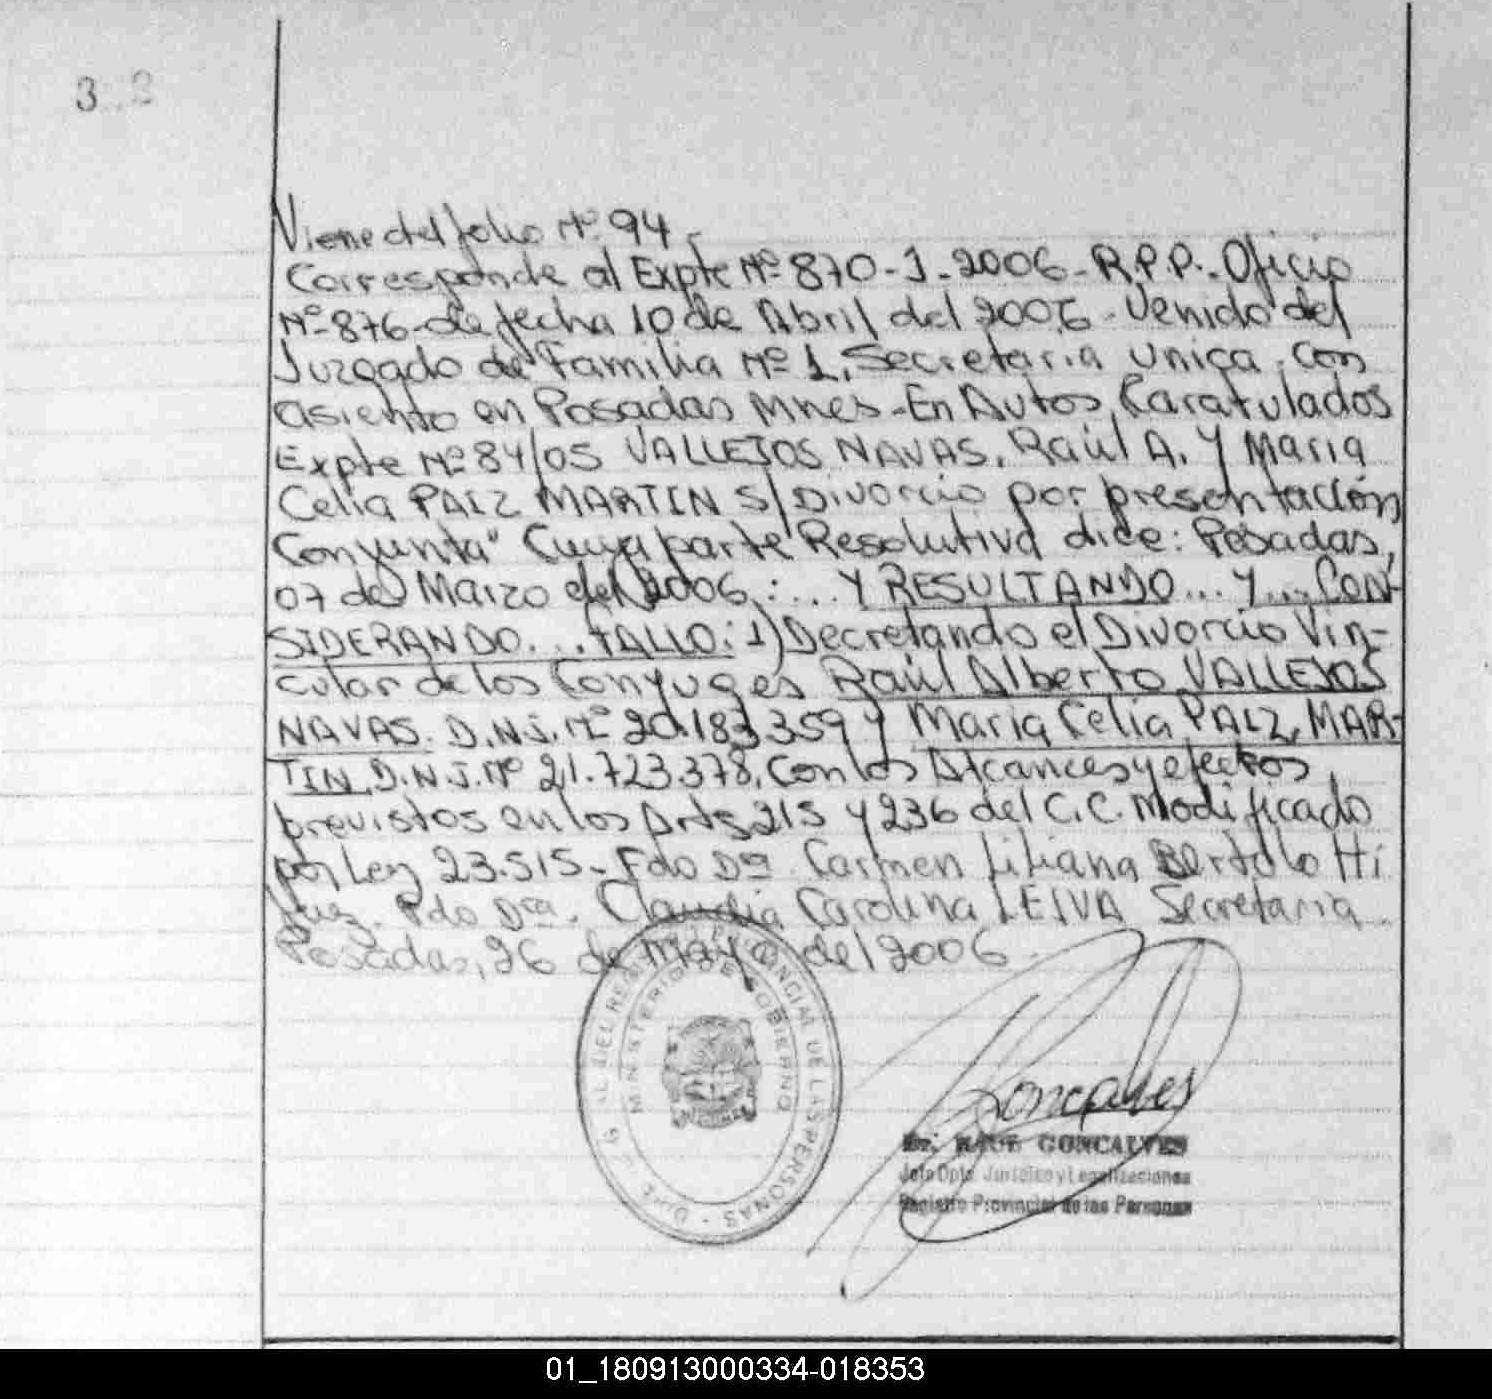 Viene del folio Nº 94.
Corresponde al Expte Nº 870-J-2006-R.P.P.. Oficio
Nº-876-de fecha 10 de Abril del 2006- Venido del
Juzgado de Familia Nº 1, Secretaria Unica. con
asiento en Posadas Mnes-En Autos, Caratulados
Expte Nº 84/05 VALLEJOS NAVAS, Raúl A. Y Maria
Celia PAIZ MARTIN S/Divorcio por presentación
Conjunta" Cuya parte Resolutiva dice: Posadas,
07 de Marzo del 2006:... Y RESULTANDO... Y... CON-
SIDERANDO... FALLO: 1) Decretando el Divorcio Vin-
cular de los Conyuges Raúl Alberto VALLEJOS
NAVAS. D.N.I. Nº 20.183.359 y Maria Celia PAIZ, MAR-
TIN D.N.I. Nº 21.723.378, Con los Alcances y efectos
previstos en los Arts 215 y 236 del C.C. Modificado
por Ley 23.515- Fdo Dra. Carmen Liliana Bertolotti
Juez. Fdo Dra. Claudia Carolina LEIVA Secretaria
Posadas, 26 de Mayo del 2006.
PROVINCIAL DE LAS PERSONAS
MINISTERIO DE GOBIERNO
Goncalves
Dr. RAUL GONCALVES
Jefe Dpto. Jurídico y Legalizaciones
Registro Provincial de las Personas
01_180913000334-018353